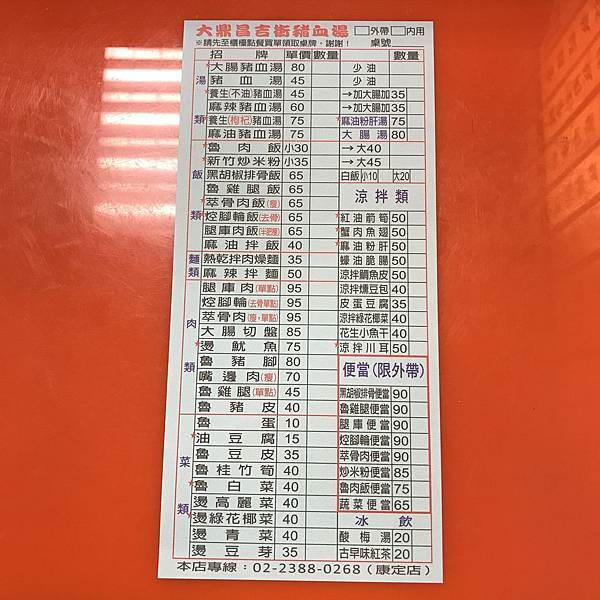 大鼎昌吉街豬血湯 □外帶 □内用
*請先至櫃檯點餐買單領取桌牌，謝謝！ 桌號
招牌 單價 數量 數量
湯類
*大腸豬血湯 80 少油
豬血湯 45 少油
*養生(不油)豬血湯 45 →加大腸加35
麻辣豬血湯 60 →加大腸加35
*養生(枸杞)豬血湯 75 *麻油粉肝湯 75
麻油豬血湯 75 大腸湯 80
飯類
*魯肉飯 小30 →大40
*新竹炒米粉 小35 →大45
黑胡椒排骨飯 65 白飯 小10 大20
魯雞腿飯 65 涼拌類
*萃骨肉飯(瘦) 65
*焢腳輪飯(去骨) 65 *紅油箭筍 50
腿庫肉飯(半肥瘦) 65 *蟹肉魚翅 50
麻油拌飯 40 *麻油粉肝 50
麵類
熱乾拌肉燥麵 35 蠔油脆腸 50
麻辣拌麵 50 涼拌鯛魚皮 50
肉類
腿庫肉(單點) 95 涼拌燻豆包 40
焢腳輪(去骨單點) 95 皮蛋豆腐 35
萃骨肉(瘦，單點) 95 涼拌綠花椰菜 40
大腸切盤 85 花生小魚干 40
*燙魷魚 75 *涼拌川耳 50
魯豬腳 80 便當(限外帶)
嘴邊肉(瘦) 70
魯雞腿(單點) 45 黑胡椒排骨便當 90
魯豬皮 40 魯雞腿便當 90
菜類
魯蛋 10 腿庫便當 90
*油豆腐 15 焢腳輪便當 90
魯豆皮 35 萃骨肉便當 90
魯桂竹筍 40 炒米粉便當 85
*魯白菜 40 魯肉飯便當 75
燙高麗菜 40 蔬菜便當 65
*燙綠花椰菜 40 冰飲
燙青菜 40 酸梅湯 20
燙豆芽 35 古早味紅茶 20
本店專線：02-2388-0268（康定店）